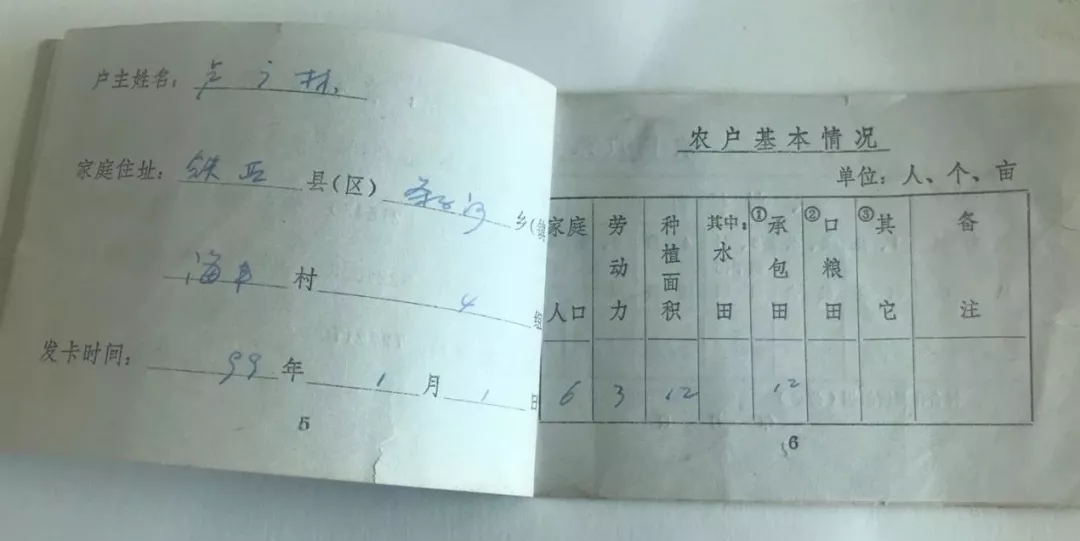 户主姓名：卢广林
家庭住址：铁西 县(区) 条子河 乡(镇
海丰 村 4 组
发卡时间：99 年 1 月 1 日
5
农户基本情况
单位：人、个、亩
家庭人口 劳动力 种植面积 其中：水田 ①承包田 ②口粮田 ③其它 备注
6 3 12 12
6